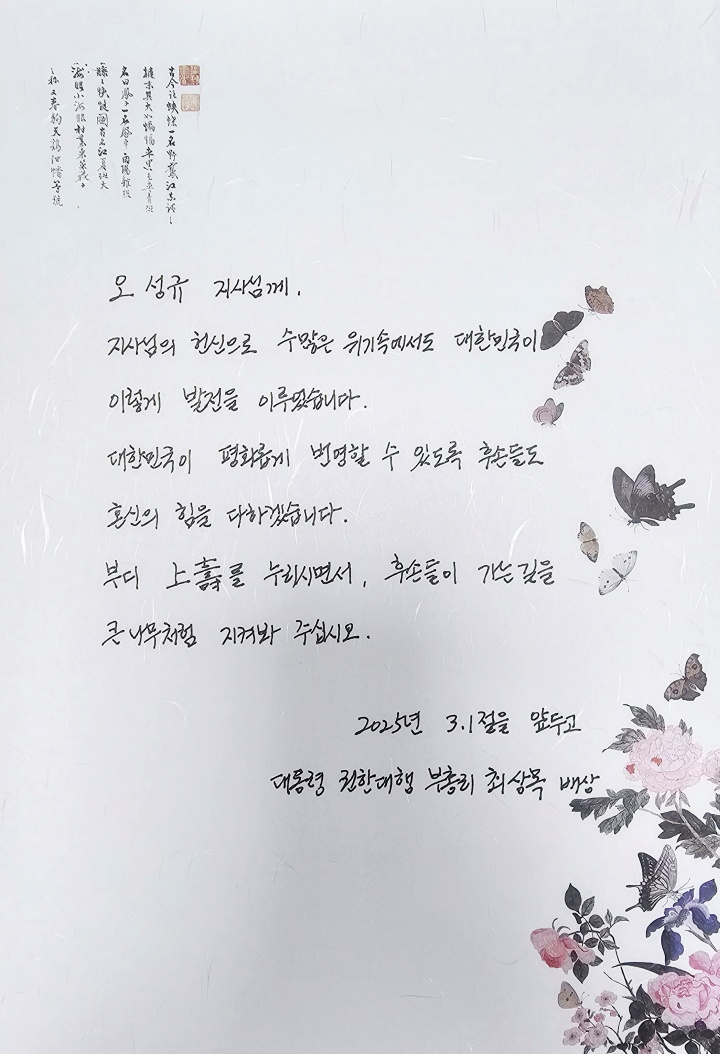 오 성규 지사님께.
지사님의 헌신으로 수많은 위기속에서도 대한민국이
이렇게 발전을 이루었습니다.
대한민국이 평화롭게 번영할 수 있도록 후손들도
혼신의 힘을 다하겠습니다.
부디 上壽를 누리시면서, 후손들이 가는 길을
큰 나무처럼 지켜봐 주십시오.
2025년 3.1절을 앞두고
대통령 권한대행 부총리 최상목 배상